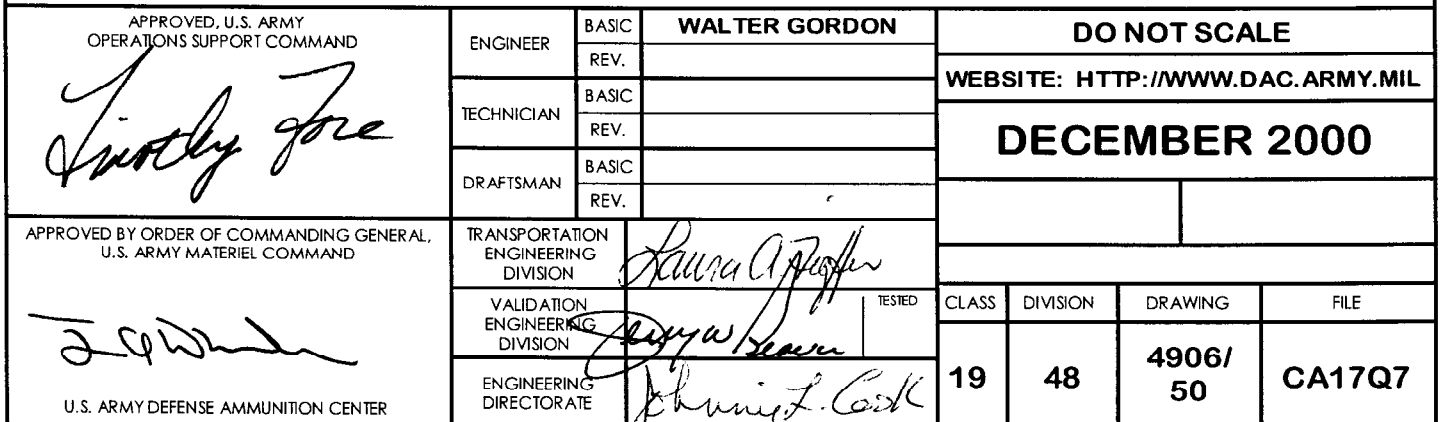 APPROVED, U.S. ARMY
OPERATIONS SUPPORT COMMAND
Timothy Fore
APPROVED BY ORDER OF COMMANDING GENERAL,
U.S. ARMY MATERIEL COMMAND
U.S. ARMY DEFENSE AMMUNITION CENTER
ENGINEER
BASIC
WALTER GORDON
REV.
TECHNICIAN
BASIC
REV.
DRAFTSMAN
BASIC
REV.
TRANSPORTATION
ENGINEERING
DIVISION
Laura A
VALIDATION
ENGINEERING
DIVISION
Jerry W Beaver
TESTED
ENGINEERING
DIRECTORATE
Johnnie L. Cook
DO NOT SCALE
WEBSITE: HTTP://WWW.DAC.ARMY.MIL
DECEMBER 2000
CLASS
DIVISION
DRAWING
FILE
19
48
4906/
50
CA17Q7